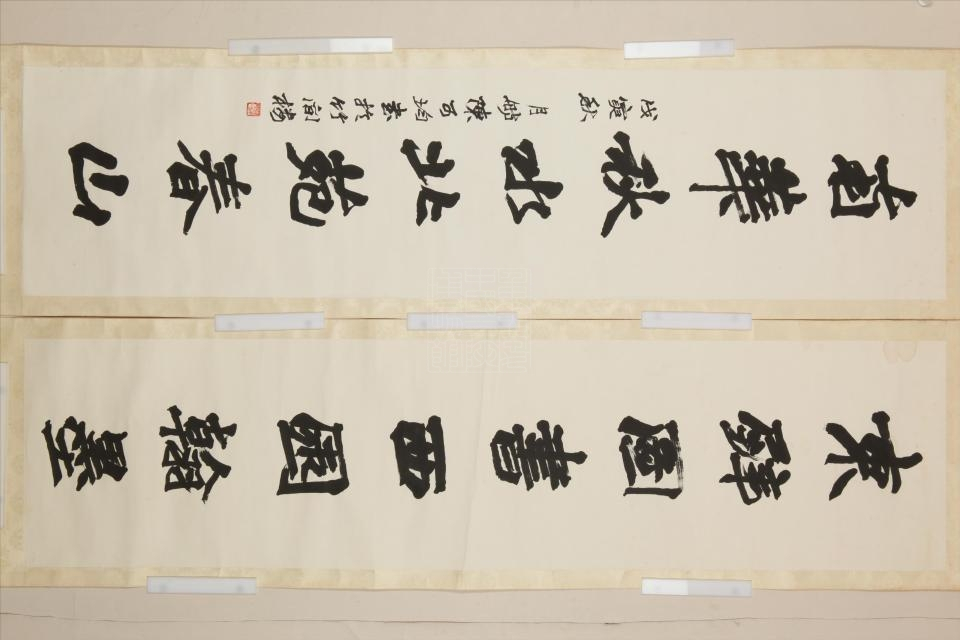 東壁圖書西園翰墨
南華秋水北苑春山
戊寅秋月舫陳均書於竹間樓